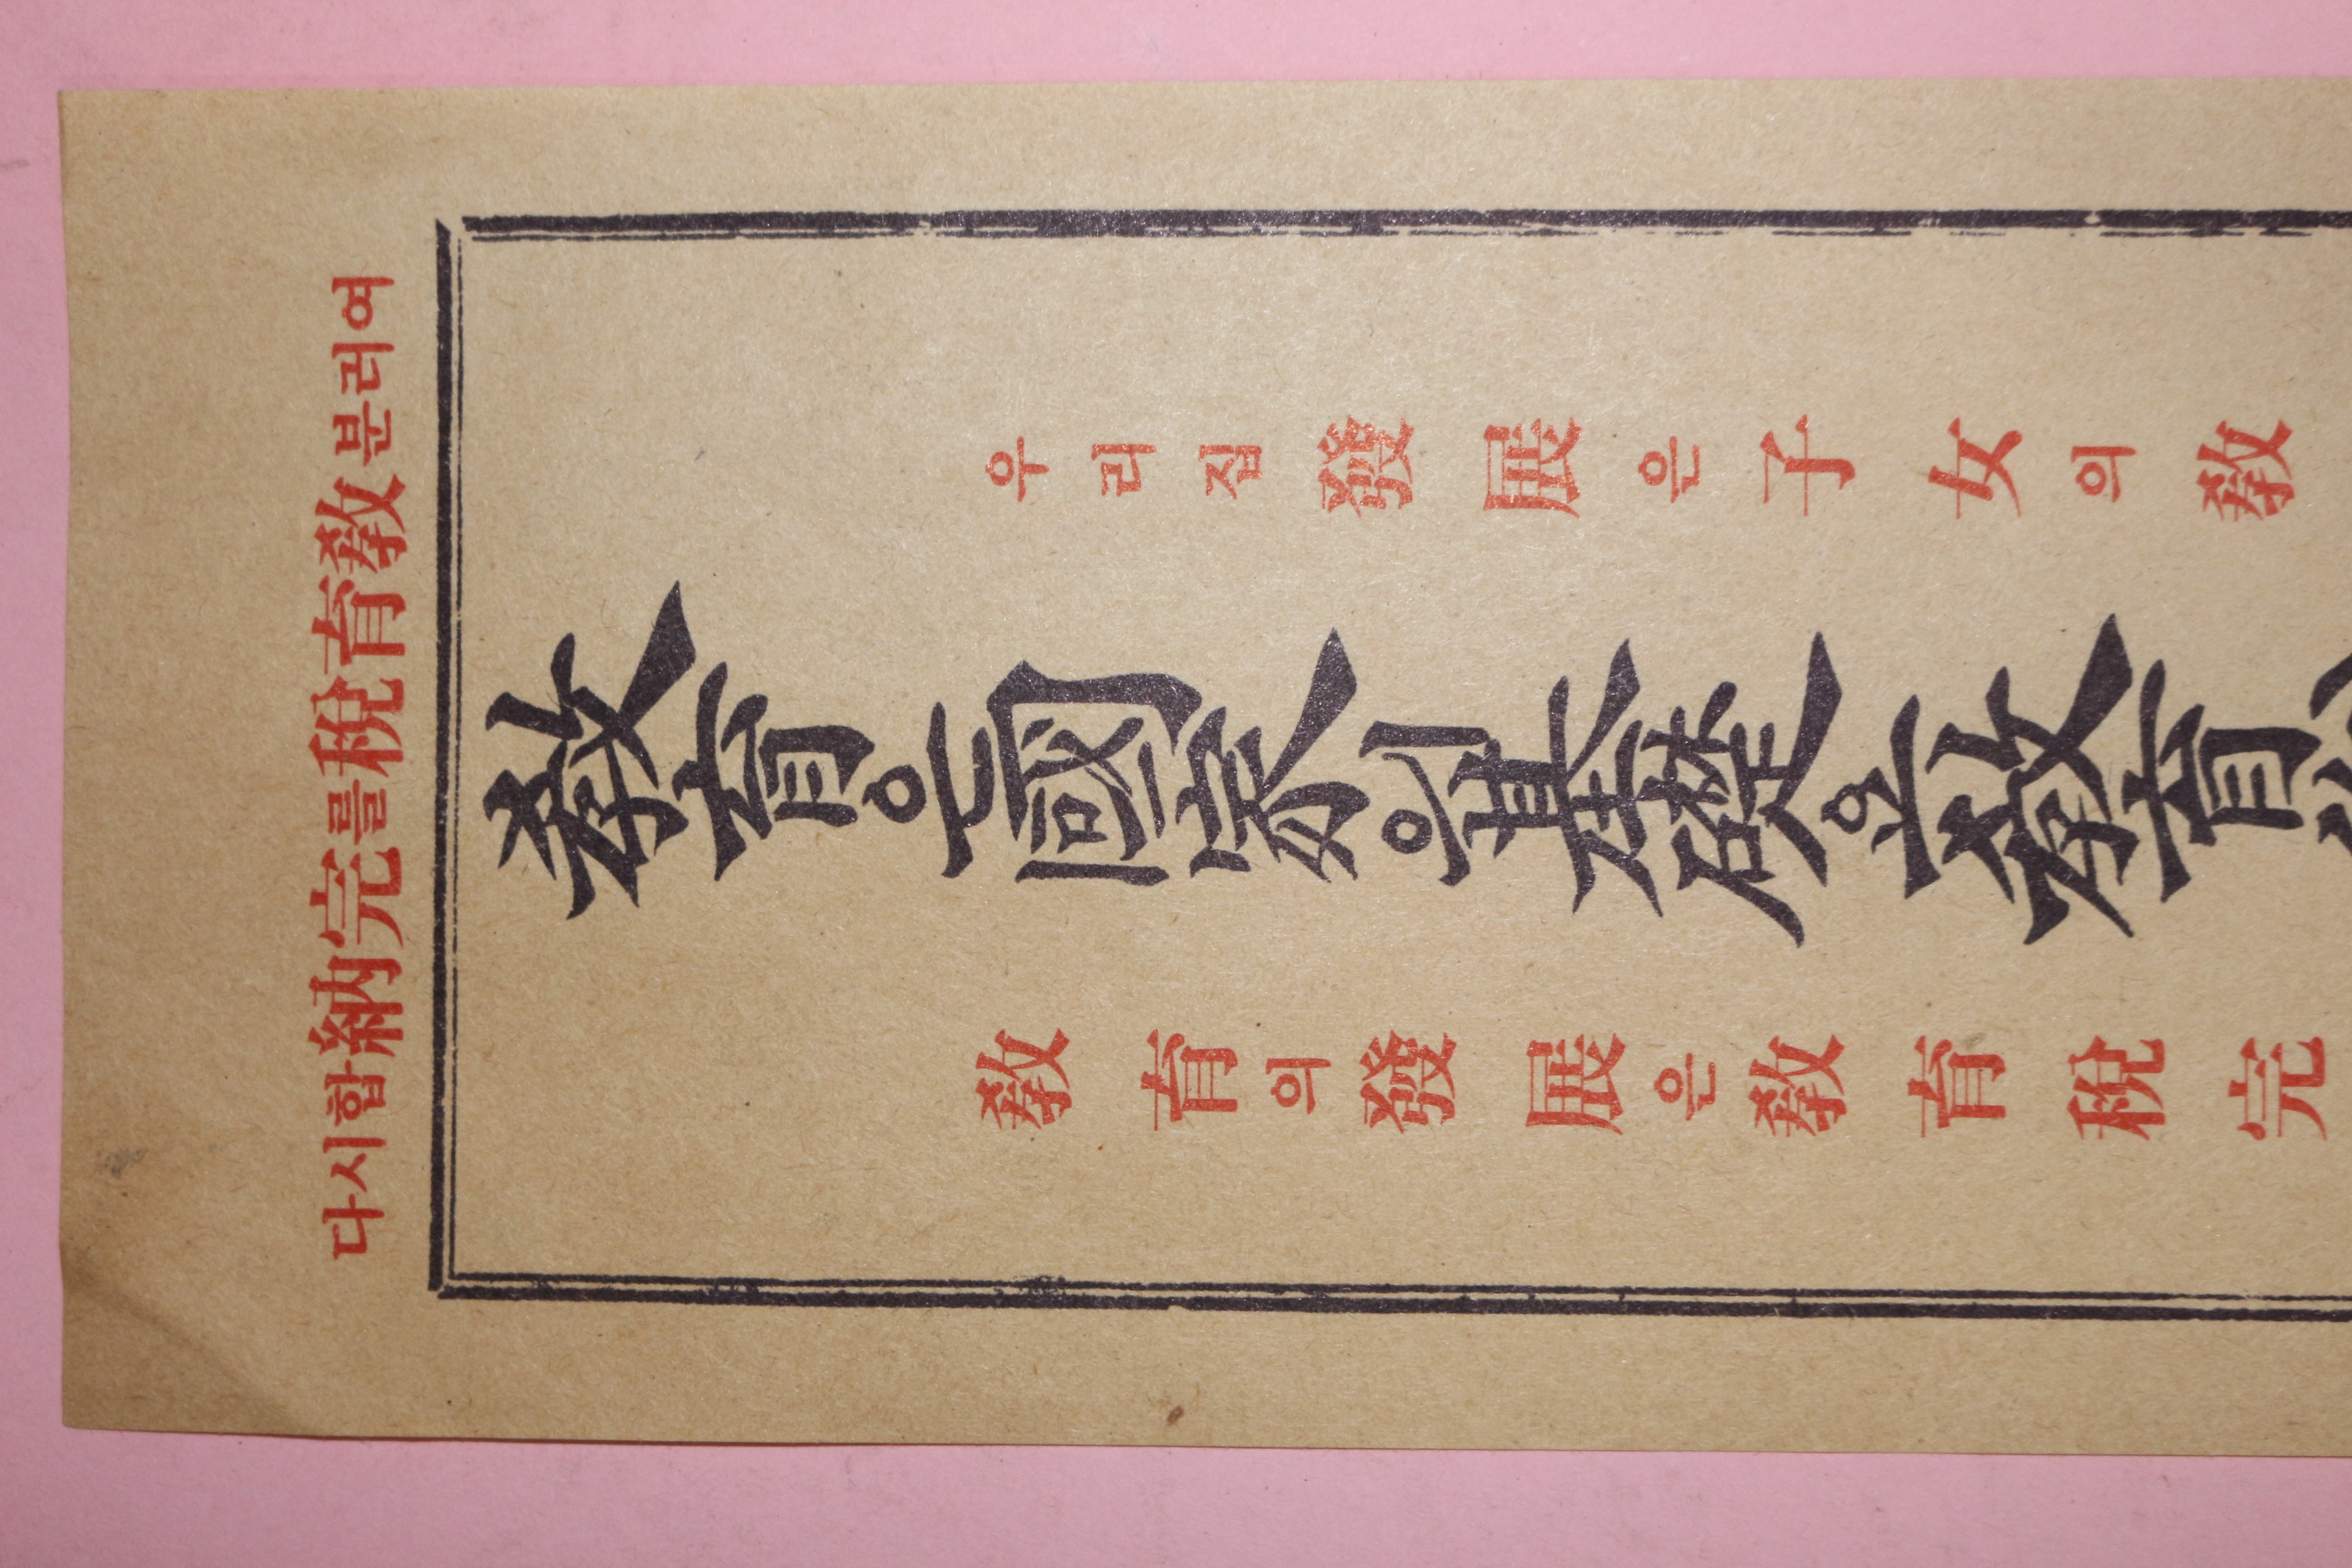 여러분敎育稅를完納합시다
우리집發展은子女의敎
敎育은國家의基礎요敎育
敎育의發展은敎育稅完